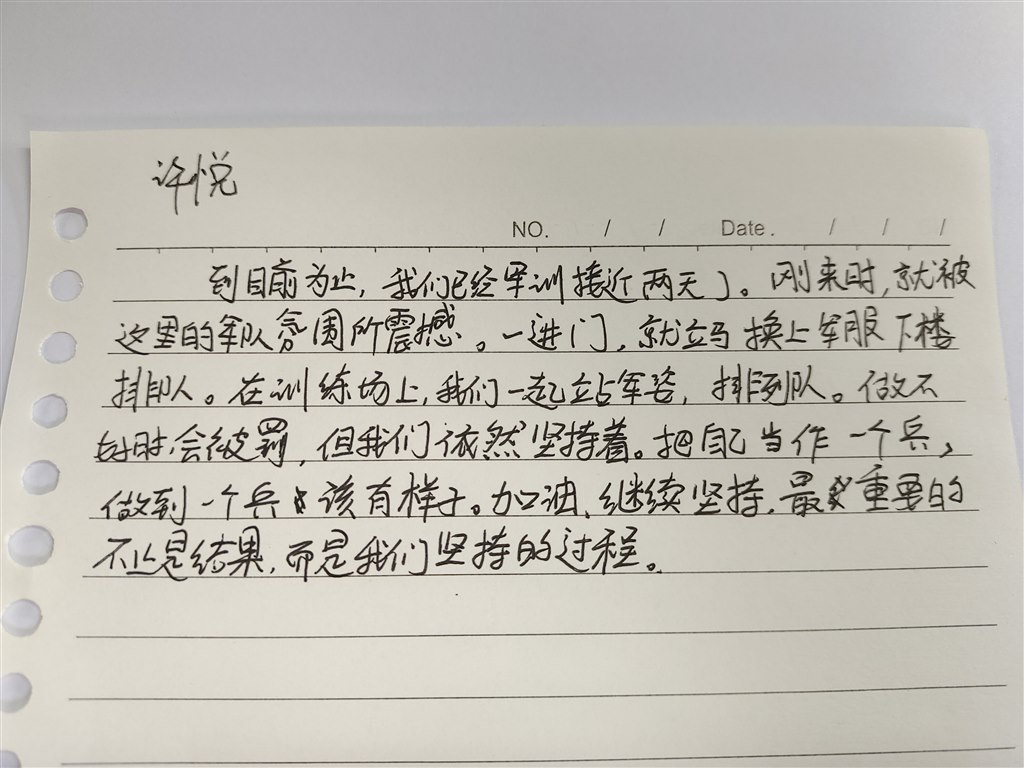 许悦
NO. / / Date. / / /
到目前为止，我们已经军训接近两天了。刚来时，就被
这里的军队氛围所震撼。一进门，就立马换上军服下楼
排队。在训练场上，我们一起站军姿，排列队。做不
好时会被罚，但我们依然坚持着。把自己当作一个兵，
做到一个兵该有样子。加油，继续坚持，最重要的
不止是结果，而是我们坚持的过程。